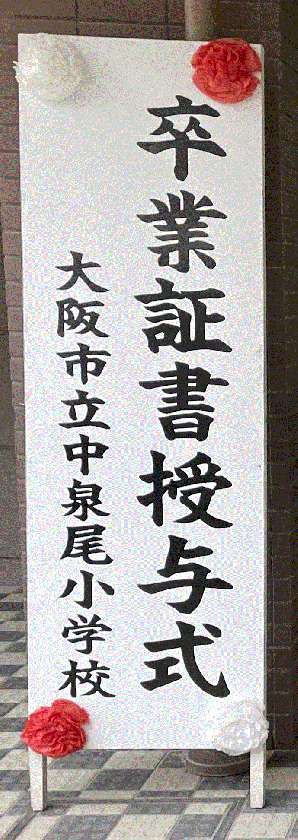 卒業証書授与式
大阪市立中泉尾小学校